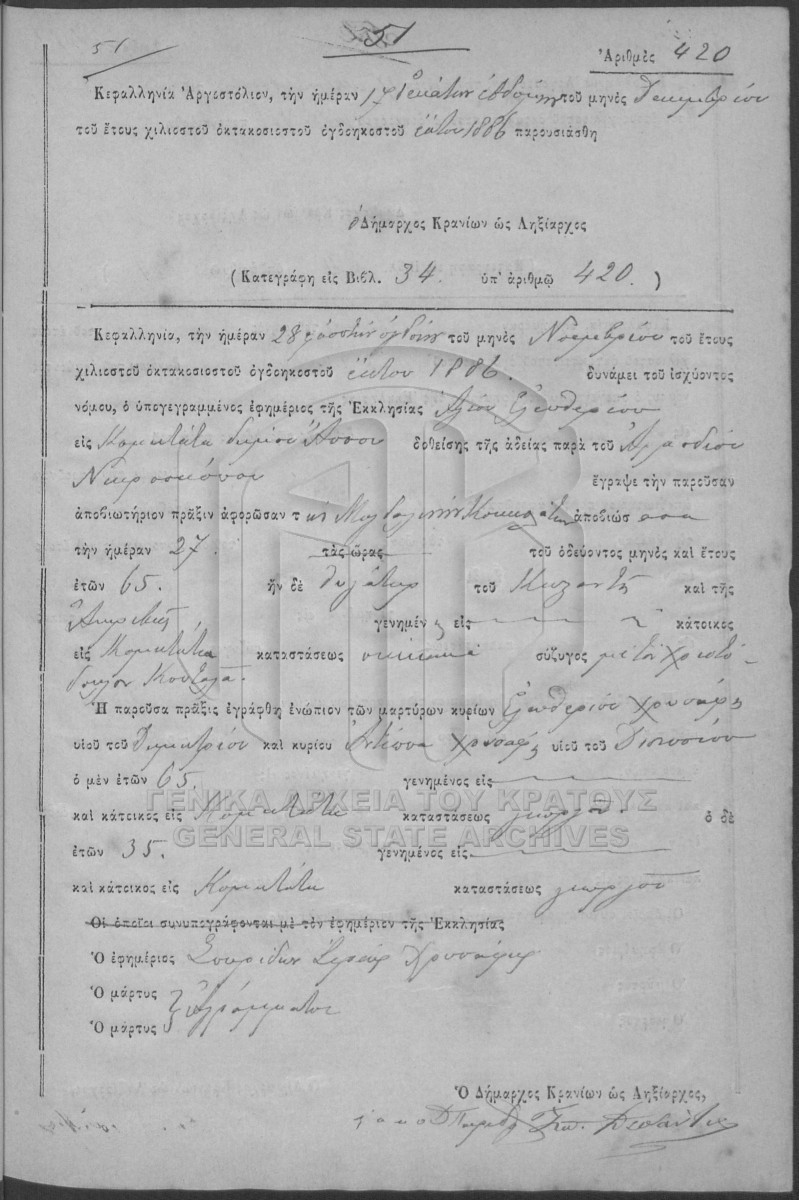 51 51 Ἀριθμὸς 420
Κεφαλληνία Ἀργοστόλιον, τὴν ἡμέραν 17 δεκάτην ἑβδόμην τοῦ μηνὸς Δεκεμβρίου
τοῦ ἔτους χιλιοστοῦ ὀκτακοσιοστοῦ ὀγδοηκοστοῦ ἕκτου 1886 παρουσιάσθη
ὁ Δήμαρχος Κρανίων ὡς Ληξίαρχος
(Κατεγράφη εἰς Βιβλ. 34. ὑπ' ἀριθμῷ 420.)
Κεφαλληνία, τὴν ἡμέραν 28 εἰκοστὴν ὀγδόην τοῦ μηνὸς Νοεμβρίου τοῦ ἔτους
χιλιοστοῦ ὀκτακοσιοστοῦ ὀγδοηκοστοῦ ἕκτου 1886. δυνάμει τοῦ ἰσχύοντος
νόμου, ὁ ὑπογεγραμμένος ἐφημέριος τῆς Ἐκκλησίας Ἁγίου Ἐλευθερίου
εἰς Κομητάτα δήμου Ἄσσου δοθείσης τῆς ἀδείας παρὰ τοῦ
ἔγραψε τὴν παροῦσαν
ἀποβιωτήριον πρᾶξιν ἀφορῶσαν τὴν Μαγδαληνήν ἀποβιώσασα
τὴν ἡμέραν 27. τὰς ὥρας τοῦ ὁδεύοντος μηνὸς καὶ ἔτους
ἐτῶν 65. ἦν δὲ θυγάτηρ τοῦ καὶ τῆς
γενημένη εἰς κάτοικος
εἰς Κομητάτα καταστάσεως οἰκιακά σύζυγος μὲ τὸν Χριστό-
δουλον
Ἡ παροῦσα πρᾶξις ἐγράφθη ἐνώπιον τῶν μαρτύρων κυρίων Ἐλευθερίου Χρυσάφη
υἱοῦ τοῦ Δημητρίου καὶ κυρίου Ἀντίπα Χρυσάφη υἱοῦ τοῦ Διονυσίου
ὁ μὲν ἐτῶν 65. γενημένος εἰς
καὶ κάτοικος εἰς Κομητάτα καταστάσεως γεωργοῦ. ὁ δὲ
ἐτῶν 35. γενημένος εἰς
καὶ κάτοικος εἰς Κομητάτα καταστάσεως γεωργοῦ
Οἱ ὁποῖοι συνυπογράφονται μὲ τὸν ἐφημέριον τῆς Ἐκκλησίας
Ὁ ἐφημέριος Σπυρίδων Ἱερεύς Χρυσάφης
Ὁ μάρτυς
Ὁ μάρτυς ἀγράμματοι
Ὁ Δήμαρχος Κρανίων ὡς Ληξίαρχος,
ΓΕΝΙΚΑ ΑΡΧΕΙΑ ΤΟΥ ΚΡΑΤΟΥΣ
GENERAL STATE ARCHIVES